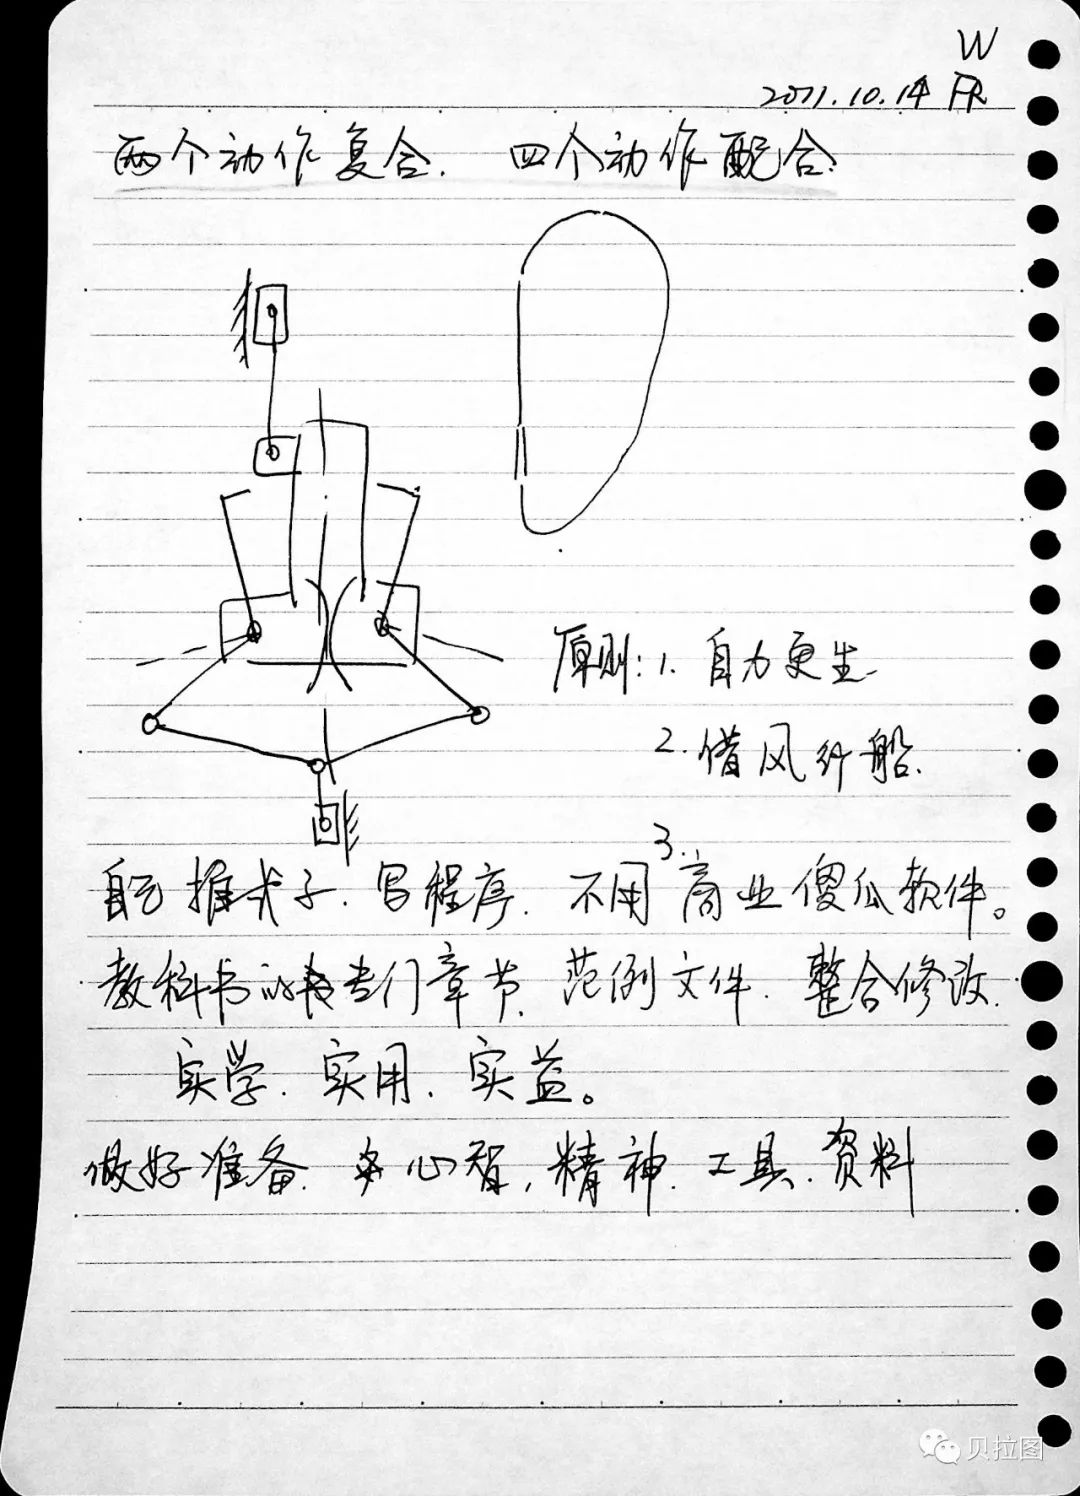 W
2011.10.14 FR
两个动作复合. 四个动作配合.
原则: 1. 自力更生.
2. 借风行船.
3.
自己推式子. 写程序. 不用商业傻瓜软件。
教科书的专门章节. 范例文件. 整合修改.
实学. 实用. 实益。
做好准备. 心智, 精神. 工具. 资料
贝拉图